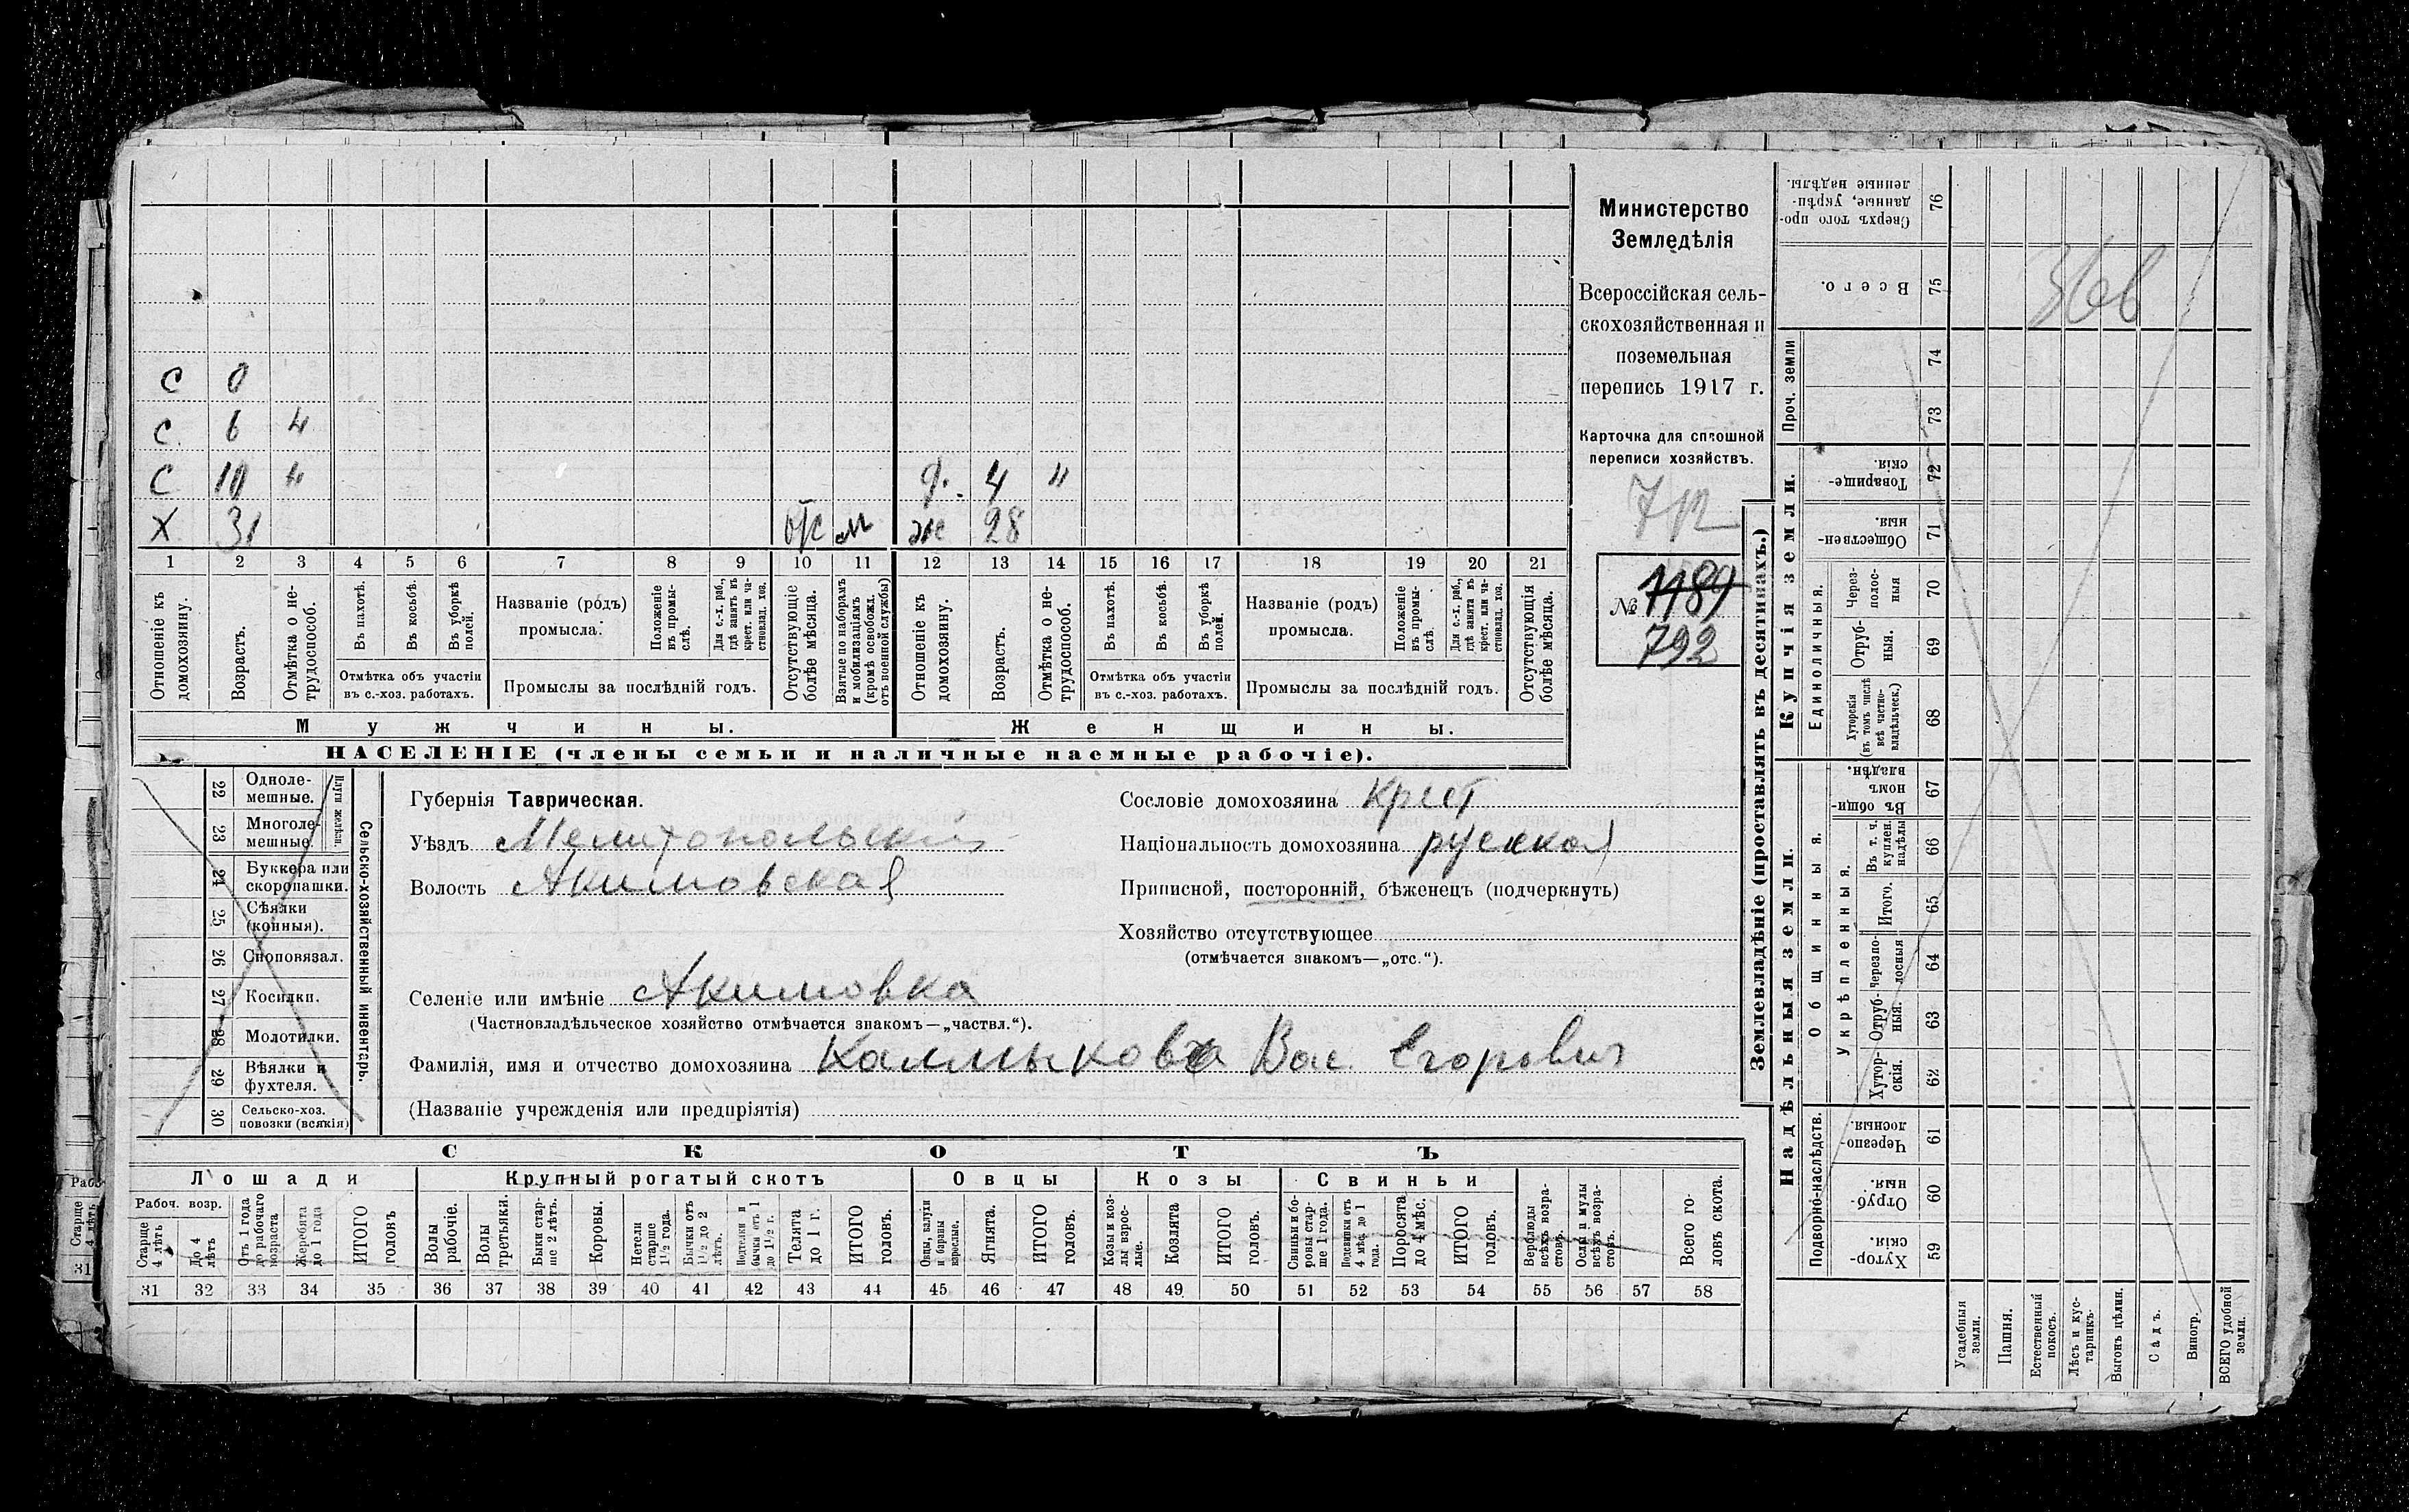 Министерство
Земледѣлія
Всероссійская сель-
скохозяйственная и
поземельная
перепись 1917 г.
Карточка для сплошной
переписи хозяйствъ.
№ 1189
792
С 0
С 6 "
С 10 " д. 4 "
Х 31 отс м ж 28
1 2 3 4 5 6 7 8 9 10 11 12 13 14 15 16 17 18 19 20 21
Отношеніе къ домохозяину.
Возрастъ.
Отмѣтка о не-трудоспособ.
Въ пахотѣ.
Въ косьбѣ.
Въ уборкѣ полей.
Отмѣтка объ участіи
въ с.-хоз. работахъ.
Названіе (родъ)
промысла.
Положеніе въ промы-слѣ.
Для с.-х. раб., гдѣ занятъ въ крест. или ча-стновлад. хоз.
Промыслы за послѣдній годъ.
Отсутствующіе болѣе мѣсяца.
Взятые по наборамъ и мобилизаціямъ (кромѣ освобожд. отъ военной службы)
Отношеніе къ домохозяину.
Возрастъ.
Отмѣтка о не-трудоспособ.
Въ пахотѣ.
Въ косьбѣ.
Въ уборкѣ полей.
Отмѣтка объ участіи
въ с.-хоз. работахъ.
Названіе (родъ)
промысла.
Положеніе въ промы-слѣ.
Для с.-х. раб., гдѣ занята въ крест. или ча-стновлад. хоз.
Промыслы за послѣдній годъ.
Отсутствующія болѣе мѣсяца.
Мужчины. Женщины.
НАСЕЛЕНІЕ (члены семьи и наличные наемные рабочіе).
Сельско-хозяйственный инвентарь.
Плуги желѣзн.
22 Одноле-мешные.
23 Многоле-мешные.
24 Буккера или скоропашки.
25 Сѣялки (конныя).
26 Сноповязал.
27 Косилки.
28 Молотилки.
29 Вѣялки и фухтеля.
30 Сельско-хоз. повозки (всякія)
Губернія Таврическая.
Уѣздъ Мелитопольскій
Волость Акимовская
Селеніе или имѣніе Акимовка
(Частновладѣльческое хозяйство отмѣчается знакомъ—„частвл.“).
Фамилія, имя и отчество домохозяина Калмыкова Вас. Егорович
(Названіе учрежденія или предпріятія)
Сословіе домохозяина крест
Національность домохозяина русская
Приписной, посторонній, бѣженецъ (подчеркнуть)
Хозяйство отсутствующее
(отмѣчается знакомъ—„отс.“).
СКОТЪ
Лошади Крупный рогатый скотъ Овцы Козы Свиньи
Рабоч. возр.
Старше 4 лѣтъ
До 4 лѣтъ
Отъ 1 года до рабочаго возраста
Жеребята до 1 года
ИТОГО головъ
Волы рабочіе.
Волы третьяки.
Быки стар-ше 2 лѣтъ.
Коровы.
Нетели старше 1 1/2 года.
Бычки отъ 1 1/2 до 2 лѣтъ.
бычки отъ 1 до 1 1/2 г.
Телята до 1 г.
ИТОГО головъ.
Овцы, валухи и бараны взрослые.
Ягнята.
ИТОГО головъ.
Козы и коз-лы взрос-лые.
Козлята
ИТОГО головъ.
Свиньи и бо-ровы стар-ше 1 года.
Подсвинки отъ 4 мѣс. до 1 года.
Поросята до 4 мѣс.
ИТОГО головъ.
Верблюды всѣхъ возра-стовъ.
Ослы и мулы всѣхъ возра-стовъ.
Всего го-ловъ скота.
31 32 33 34 35 36 37 38 39 40 41 42 43 44 45 46 47 48 49 50 51 52 53 54 55 56 57 58
Землевладѣніе (проставлять въ десятинахъ.)
Купчія земли.
Надѣльныя земли.
Сверхъ того про-данные, укрѣп-ленные надѣлы. 76
Всего. 75
Проч. земли 74
73
Товарище-скія 72
Обществен-ныя. 71
Единоличныя.
Через-полос-ныя 70
Отруб-ныя. 69
Хуторскія (въ томъ числѣ всѣ частно-владѣльческ.) 68
Общинныя.
Въ общи-номъ владѣн. 67
Укрѣпленныя.
Въ т. ч. куплен. надѣлы 66
Итого. 65
Черезпо-лосныя 64
Отруб-ныя. 63
Хутор-скія. 62
Подворно-наслѣдств.
Черезпо-лосныя. 61
Отруб-ныя. 60
Хутор-скія. 59
Усадебныя земли.
Пашня.
Естественный покосъ.
Лѣсъ и кус-тарникъ.
Выгонъ цѣлин.
Садъ.
Виногр.
ВСЕГО удобной земли.
Старше 4 лѣтъ
31